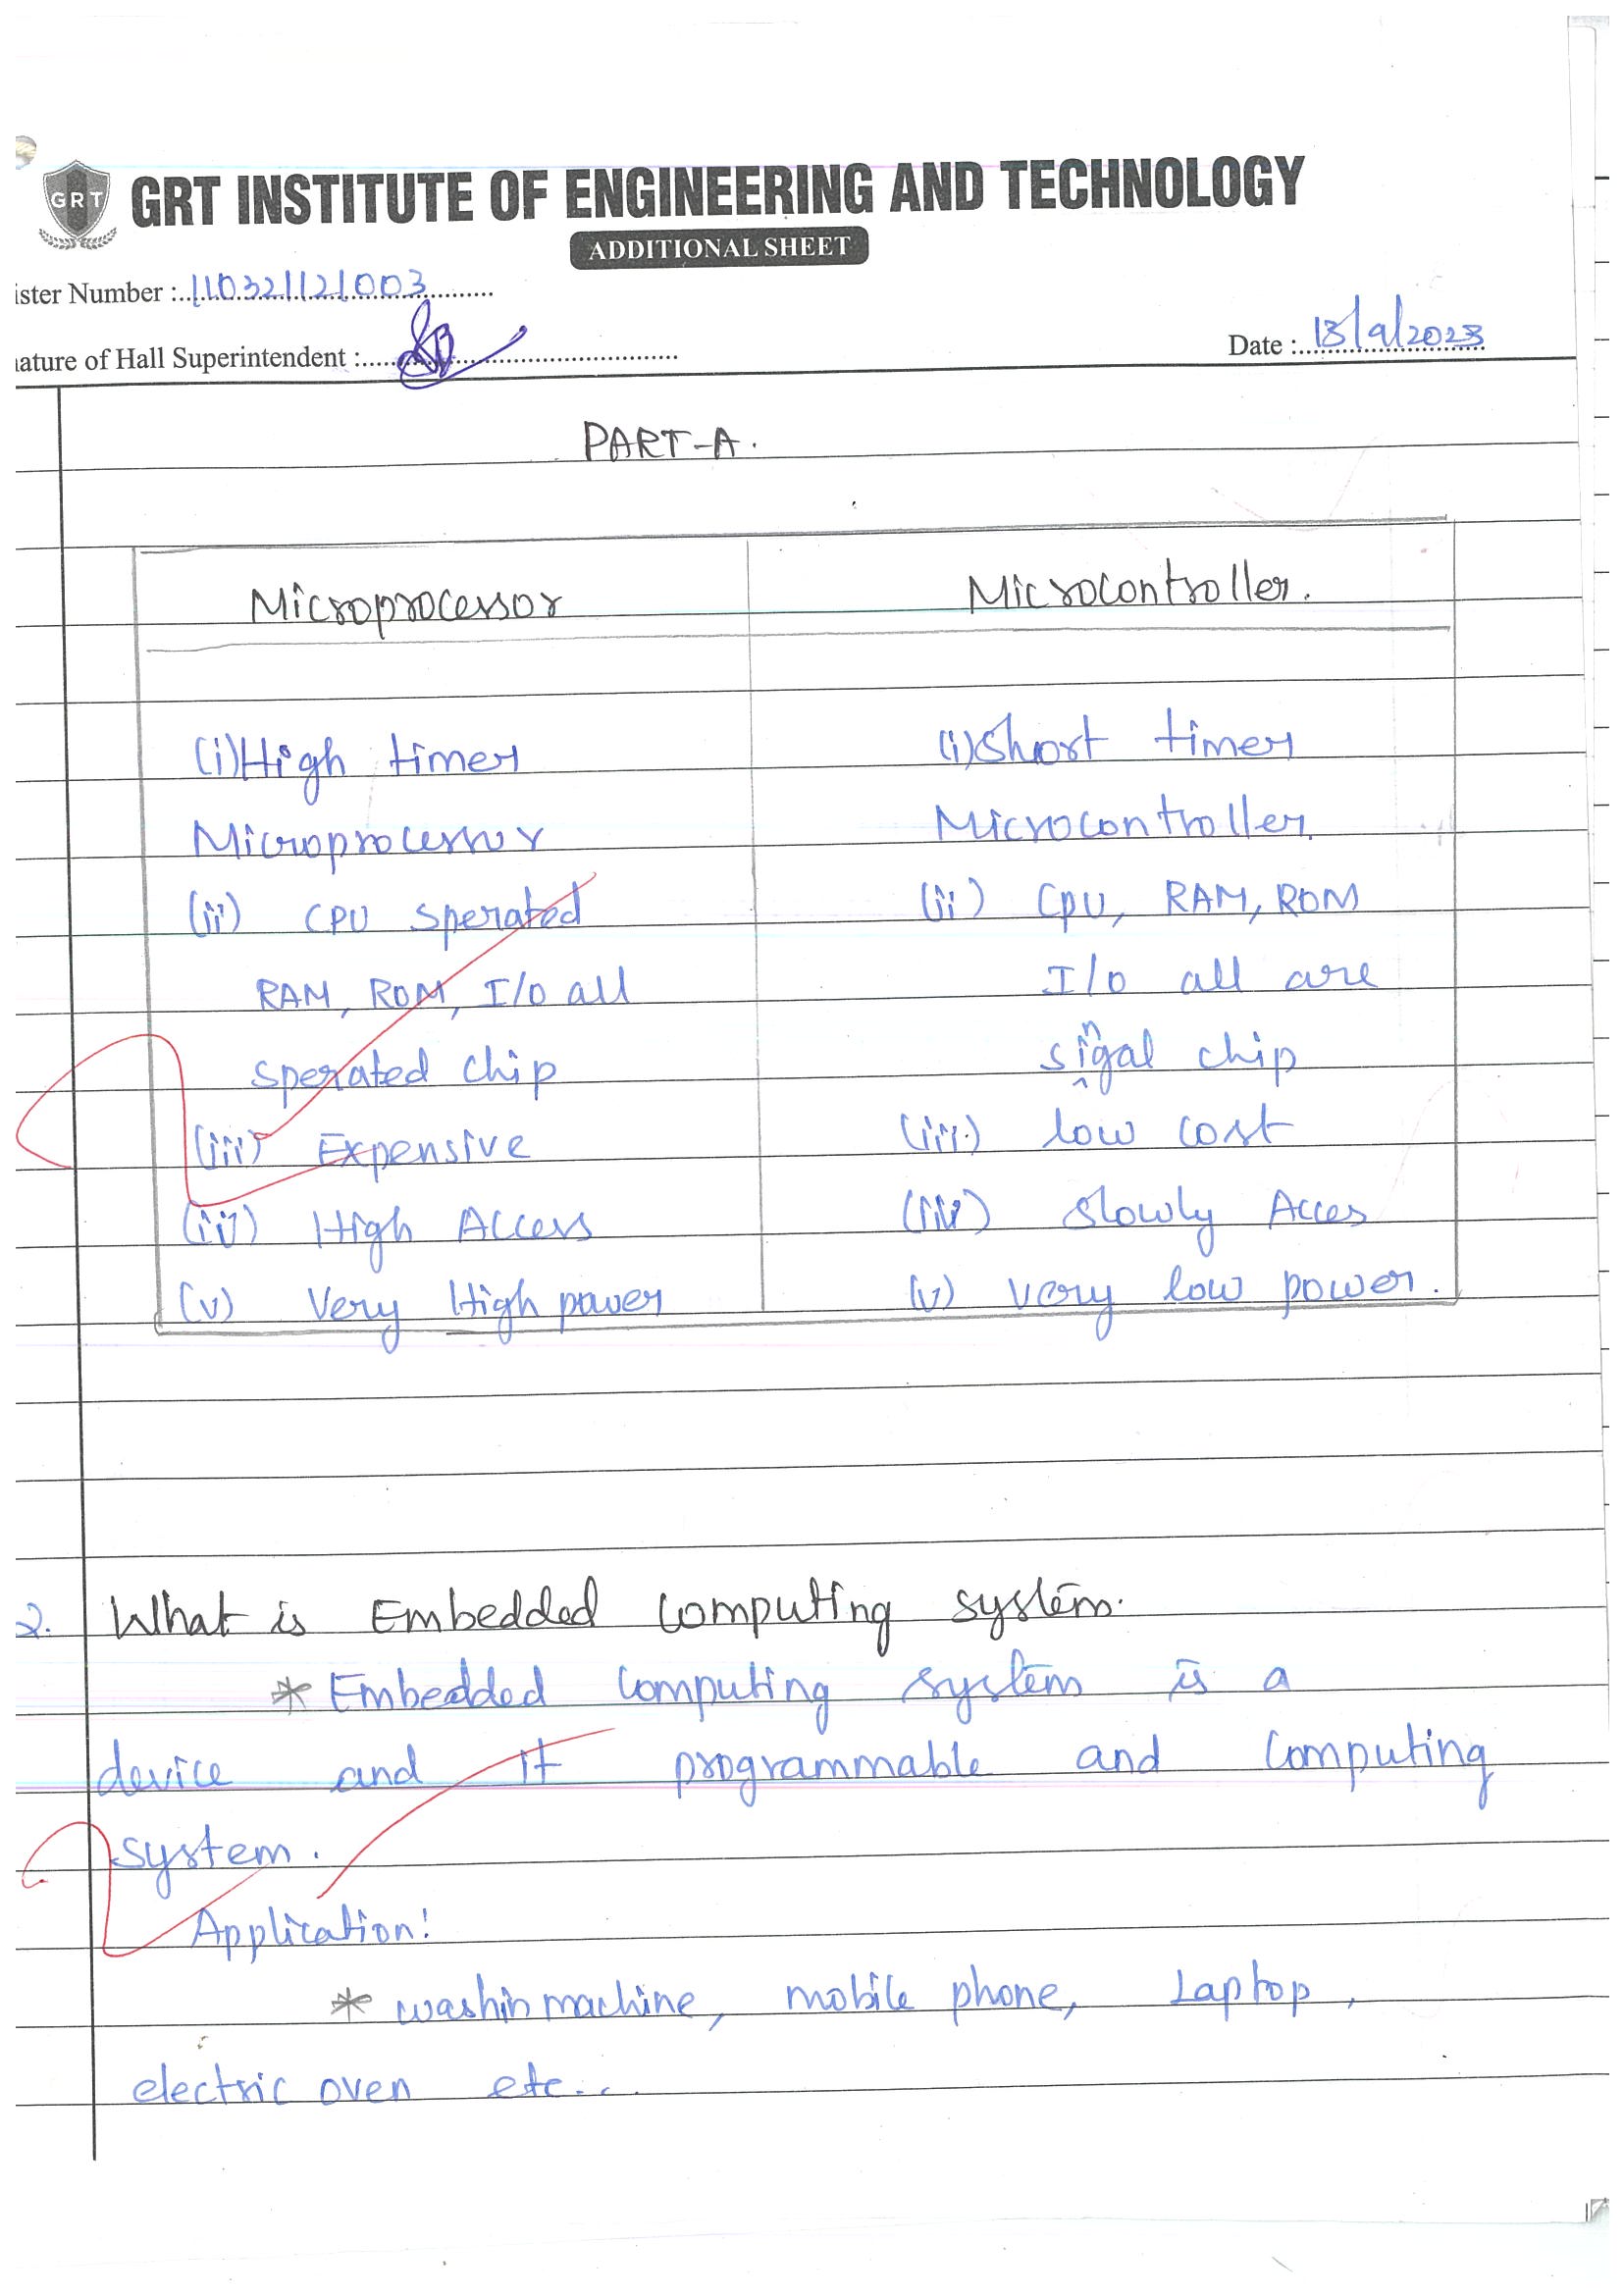 GRT
GRT INSTITUTE OF ENGINEERING AND TECHNOLOGY
ADDITIONAL SHEET
ister Number : 110321121003
nature of Hall Superintendent :
Date : 13/9/2023
PART-A.
Microprocessor Microcontroller.
(i) High timer (i) Short timer
Microprocessor Microcontroller.
(ii) CPU sperated (ii) CPU, RAM, ROM
RAM, ROM, I/O all I/O all are
sperated chip singal chip
(iii) Expensive (iii.) low cost
(iv) High Access (iv) Slowly Acces
(v) Very High power (v) very low power.
2. What is Embedded Computing system.
* Embedded Computing system is a
device and it programmable and Computing
system.
Application:
* washin machine, mobile phone, Laptop,
electric oven etc...